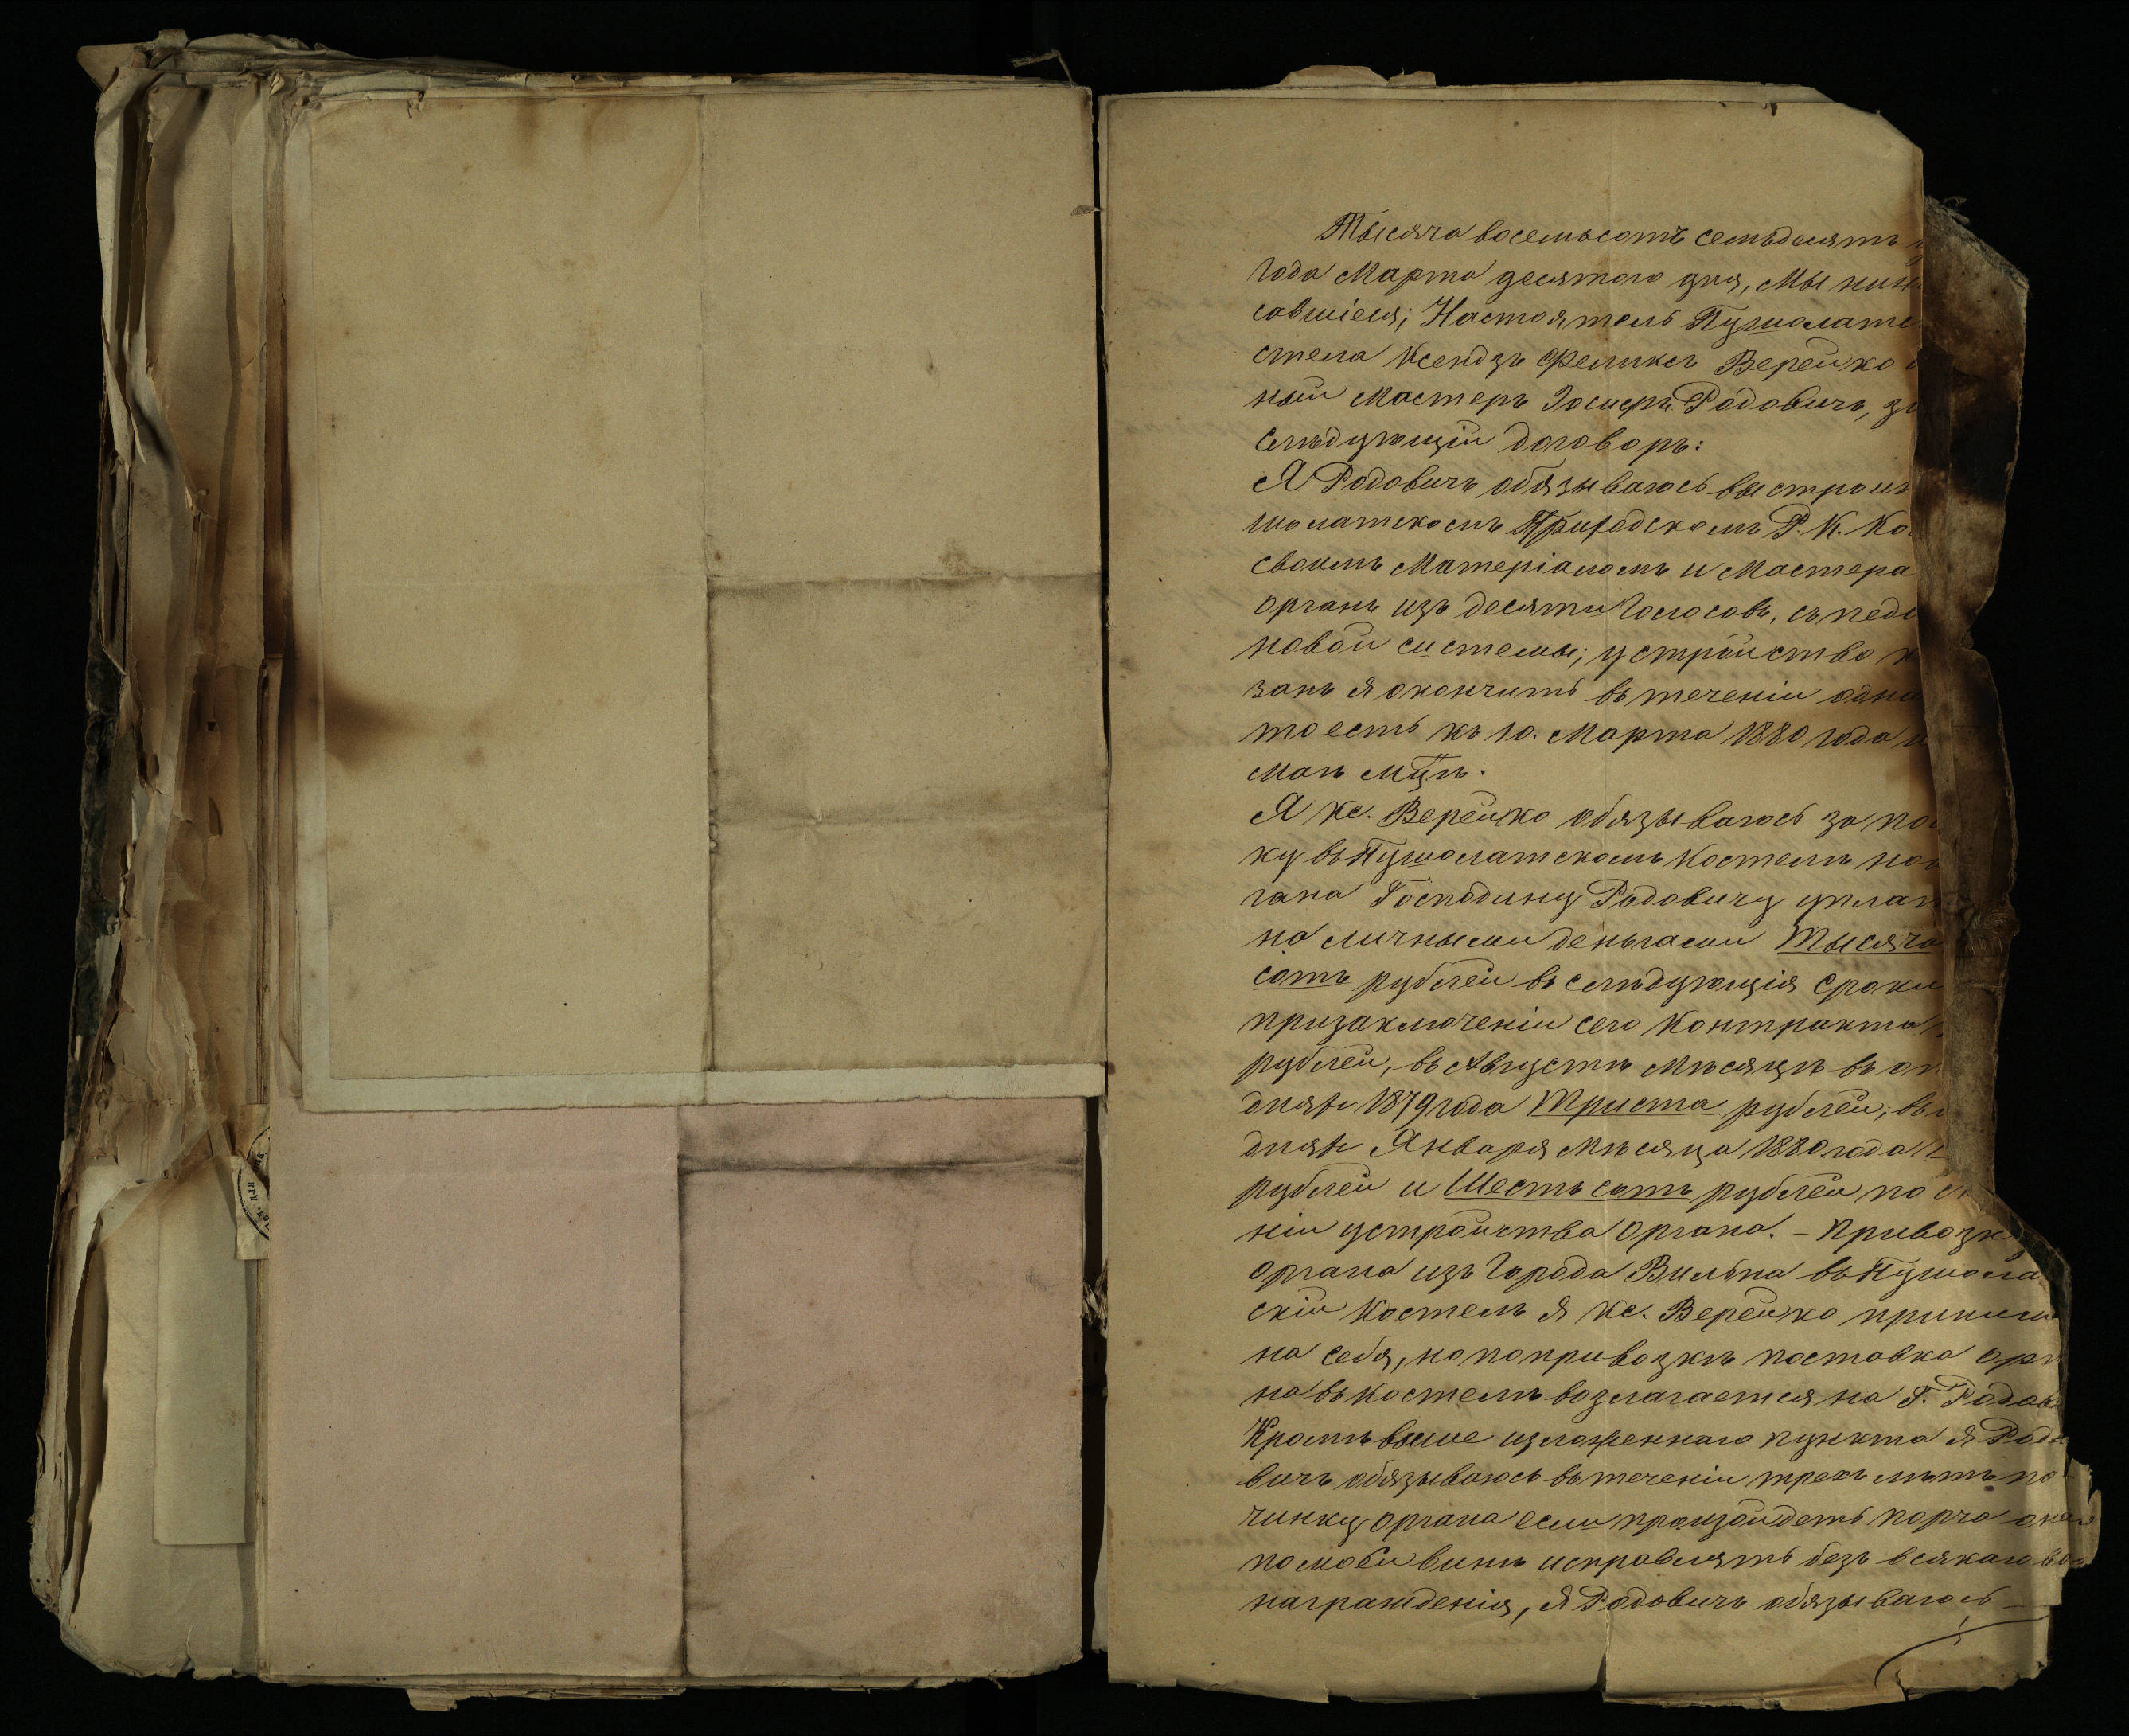 Тысяча восемьсотъ семьдесятъ
года Марта десятого дня, Мы ниж
савшіеся; Настоятель Пушолатс
стела Ксендзъ Феликсъ Верейко
ный Мастеръ Іосифъ Радовичъ, за
слѣдующій договоръ:
Я Радовичъ обязываюсь выстроит
шолатскомъ Приходскомъ Р. К. Ко
своимъ Матеріаломъ и Мастера
органъ изъ десяти Голосовъ, съ педа
новой системы; устройство
занъ я окончить въ теченіи одно
то есть къ 10. Марта 1880 года
Я Кс. Верейко обязываюсь за пос
ку въ Пушолатскомъ Костелѣ нов
гана Господину Радовичу уплат
наличными деньгами Тысяча
сотъ рублей въ слѣдующія сроки
призаключеніи сего Контракта
рублей, въ Августѣ Мѣсяцѣ въ
дняхъ 1879 года Триста рублей, въ
дняхъ Января Мѣсяца 1880 года
рублей и Шестьсотъ рублей по
ніи устройства Органа. – Привозк
органа изъ Города Вильна въ Пушола
скій Костелъ я Кс. Верейко приним
на себя, но попривозкѣ поставка орга
на въ Костелъ возлагается на Г. Радов
Кромѣ выше изложеннаго пункта я Радо
вичъ обязываюсь въ теченіи трехъ лѣтъ по
чинку Органа если произойдетъ порча онаго
помоей винѣ исправлять безъ всякаго воз
награжденія, я Радовичъ обязываюсь